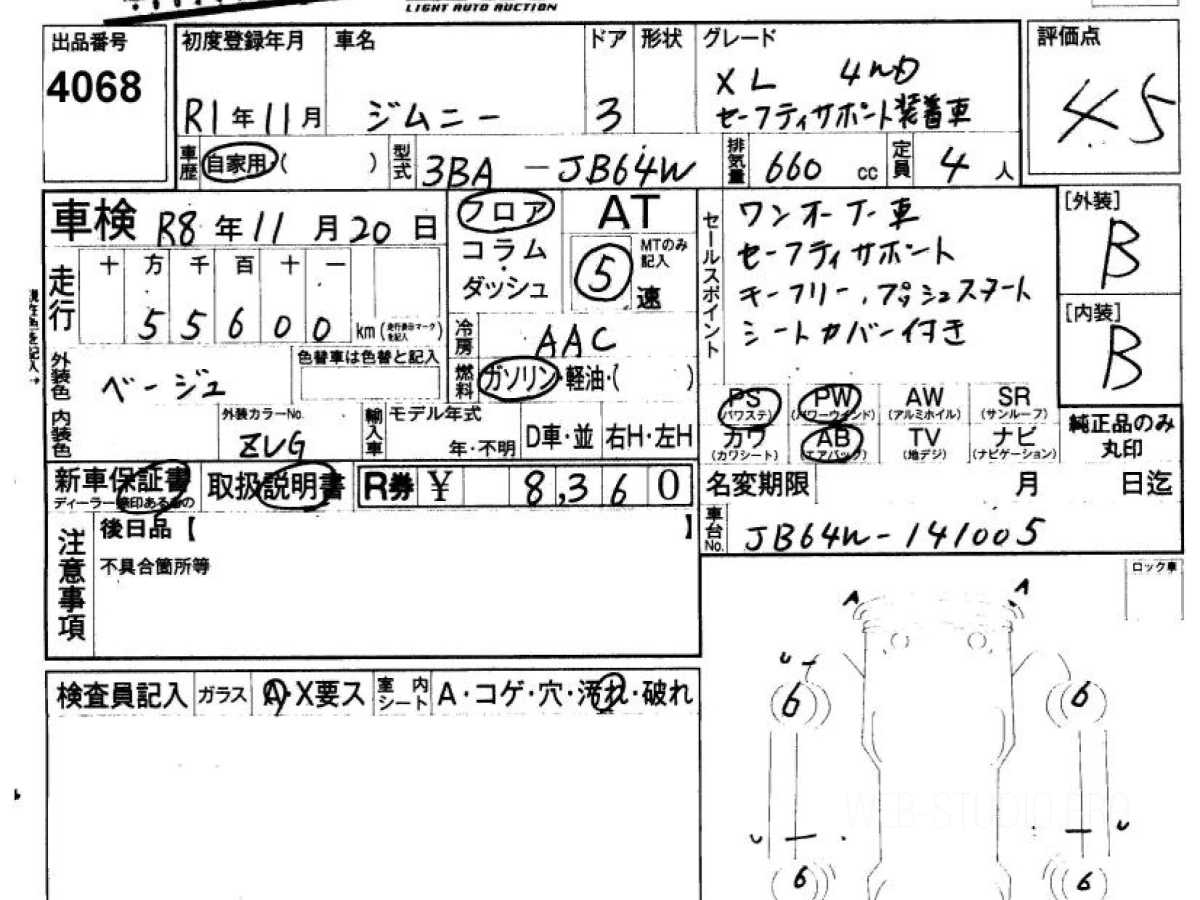 LIGHT AUTO AUCTION
出品番号
4068
初度登録年月
R1年11月
車名
ジムニー
ドア
3
形状
グレード
XL 4WD
セーフティサポート装着車
評価点
4.5
車歴
自家用・( )
型式
3BA-JB64W
排気量
660 cc
定員
4人
車検 R8年11月20日
走行
十 万 千 百 十 一
5 5 6 0 0 km (走行表示マークを記入)
フロア
コラム
・
ダッシュ
AT
MTのみ記入
5速
セールスポイント
ワンオーナー車
セーフティサポート
キーフリー、プッシュスタート
シートカバー付き
[外装]
B
[内装]
B
外装色
ベージュ
色替車は色替と記入
冷房
AAC
燃料
ガソリン・軽油・( )
内装色
外装カラーNo.
ZVG
輸入車
モデル年式
年・不明
D車・並
右H・左H
PS
(パワステ)
PW
(パワーウインド)
AW
(アルミホイル)
SR
(サンルーフ)
カワ
(カワシート)
AB
(エアバック)
TV
(地デジ)
ナビ
(ナビゲーション)
純正品のみ
丸印
新車保証書
取扱説明書
R券 ¥ 8,360
名変期限 月 日迄
車台No.
JB64W-141005
注意事項
後日品【 】
不具合箇所等
ロック車
検査員記入
ガラス
A・X要ス
室内シート
A・コゲ・穴・汚れ・破れ
A
A
U
6
6
U
U
6
6
WEB-STUDIO.PRO